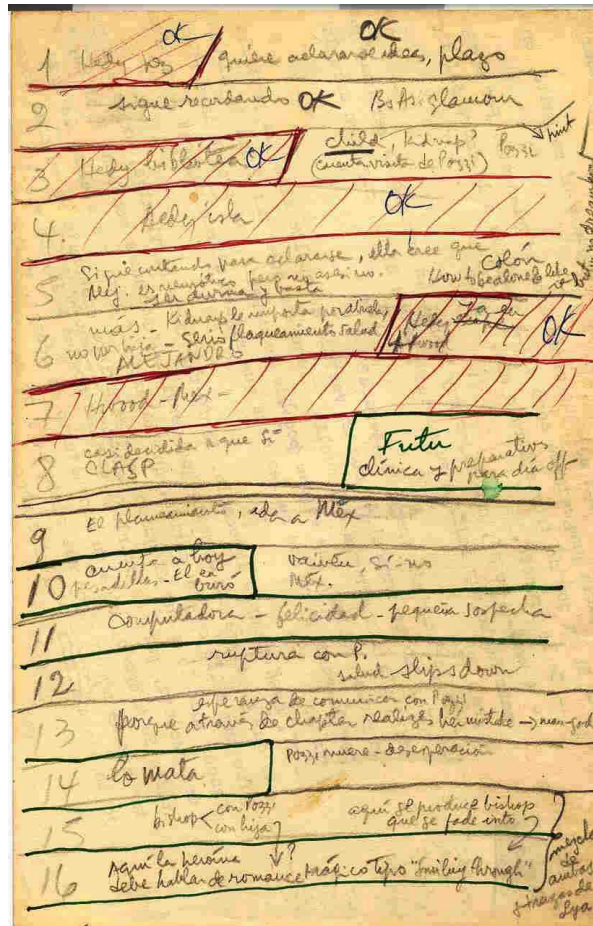 OK OK
1 Hedy quiere aclararse ideas, plazo
2 sigue recordando OK Bs As. glamour
3 Hedy biblioteca OK child, kidnap? Pozzi
(cuenta visita de Pozzi)
4. Hedy isla OK
5 Sigue contando para aclararse, ella cree que
Alej. es neurótico pero no asesino. Colón
ser divina y basta How to be alone & like
6 más - Kidnap le importa por
no por hija - sería flaqueamiento salud Hedy OK
ALEJANDRO
7 Hwood - Mex -
8 casi decidida a que sí Futu
CLASP clínica y preparativos
para día off
9 El planeamiento, ida a Méx
10 cuenta a boy vaivén, sí-no
pesadillas - El en Méx.
buró
11 Computadora - felicidad - pequeña sospecha
12 ruptura con P.
salud slips down
13 esperanza de comunicar con Pozzi
porque a través de chapter realizes her mistake → man-god
14 lo mata Pozzi muere - desesperación
15 bishop con Pozzi aquí se produce bishop
con hija que se fade into
16 Aquí la heroína ?
debe hablar de romance trágico tipo "Smiling through"
mezcla
de
ambas